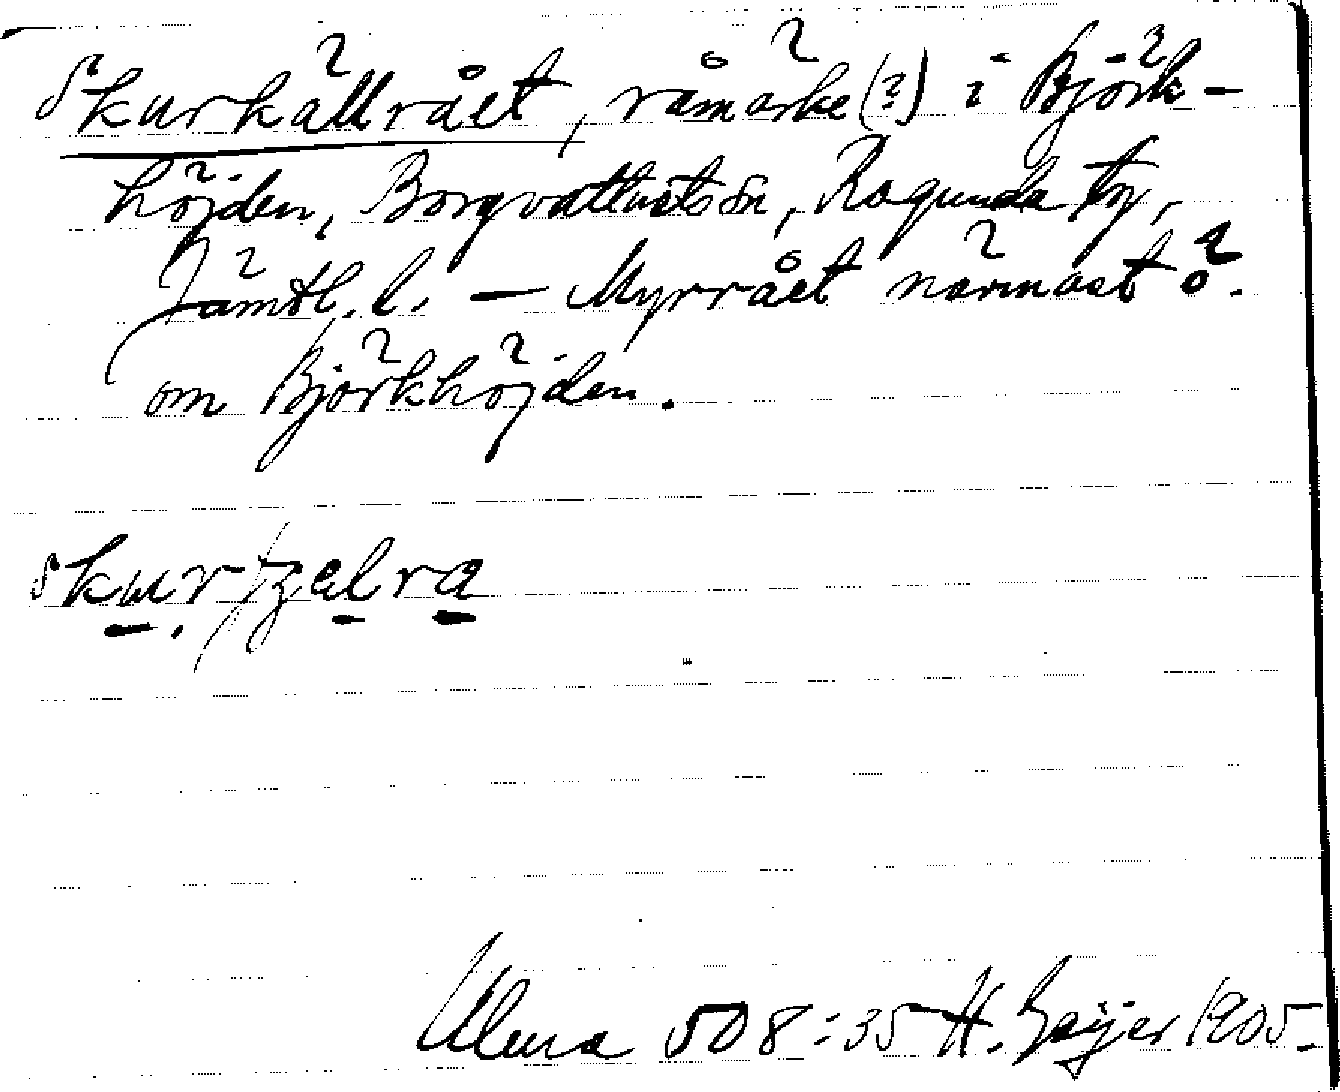 Skurkällrået, råmärke (?) i Björk-
höjden, Borgvattnets sn, Ragunda tg,
Jämtl. l. — Myrrået närmast ö.
om Björkhöjden.
skurʃʒælra
Ulma 508:35 H. Geijer 1905.